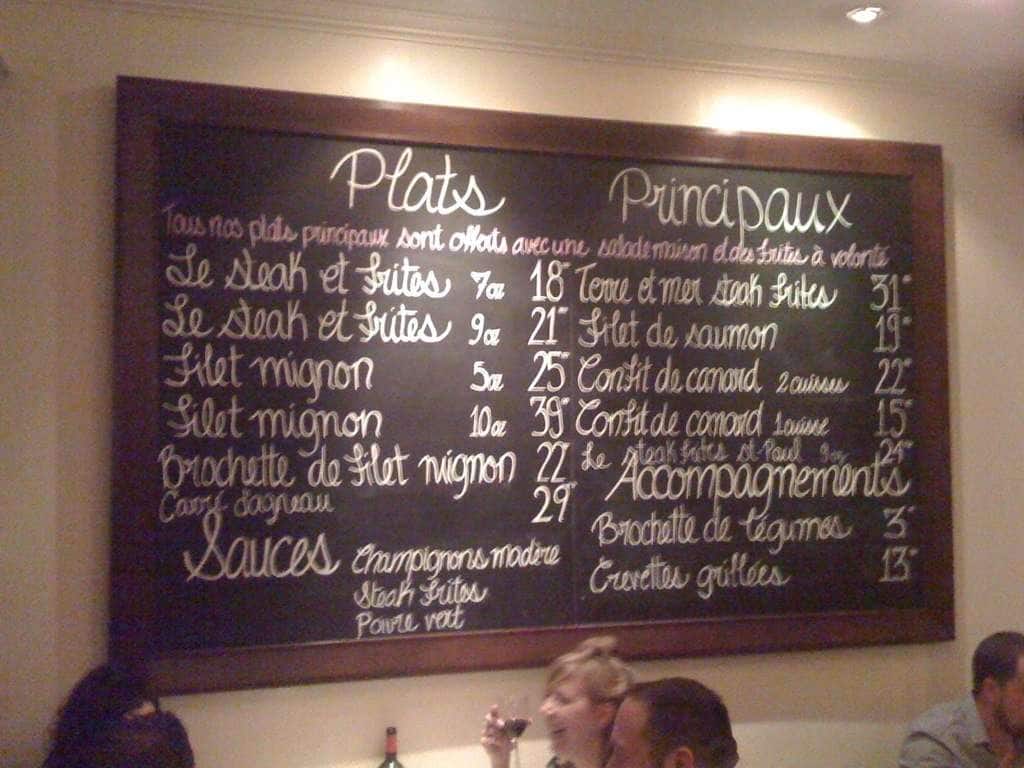 Plats Principaux
Tous nos plats principaux sont offerts avec une salade maison et des frites à volonté
Le steak et frites 7oz 18
Le steak et frites 9oz 21
Filet mignon 5oz 25
Filet mignon 10oz 39
Brochette de filet mignon 22
Carré d'agneau 29
Sauces Champignons madère
Steak frites
Poivre vert
Terre et mer steak frites 31
Filet de saumon 19
Confit de canard 2 cuisses 22
Confit de canard 1 cuisse 15
Le steak frites St-Paul 9oz
Accompagnements
Brochette de légumes 3
Crevettes grillées 13